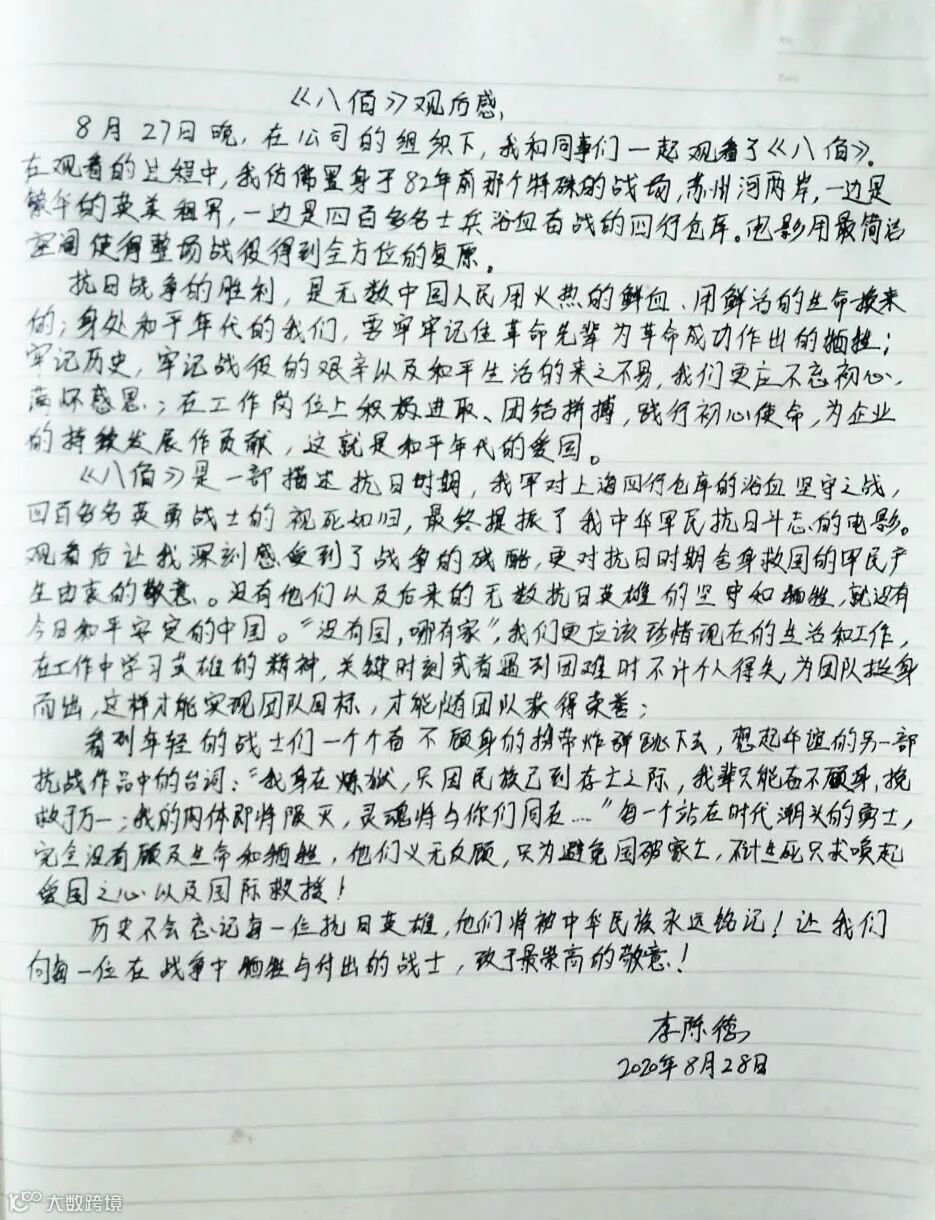 《八佰》观后感
8月27日晚，在公司的组织下，我和同事们一起观看了《八佰》。
在观看的过程中，我仿佛置身于82年前那个特殊的战场，苏州河两岸，一边是
繁华的英美租界，一边是四百多名士兵浴血奋战的四行仓库。电影用最简洁
空间使得整场战役得到全方位的复原。
抗日战争的胜利，是无数中国人民用火热的鲜血、用鲜活的生命换来
的；身处和平年代的我们，需牢牢记住革命先辈为革命成功作出的牺牲；
牢记历史，牢记战役的艰辛以及和平生活的来之不易，我们更应不忘初心、
满怀感恩；在工作岗位上积极进取、团结拼搏，践行初心使命，为企业
的持续发展作贡献，这就是和平年代的爱国。
《八佰》是一部描述抗日时期，我军对上海四行仓库的浴血坚守之战，
四百多名英勇战士的视死如归，最终提振了我中华军民抗日斗志的电影。
观看后让我深刻感受到了战争的残酷，更对抗日时期舍身救国的军民产
生由衷的敬意。没有他们以及后来的无数抗日英雄的坚守和牺牲，就没有
今日和平安定的中国。“没有国，哪有家”，我们更应该珍惜现在的生活和工作，
在工作中学习英雄的精神，关键时刻或者遇到困难时不计个人得失，为团队挺身
而出，这样才能实现团队目标，才能随团队获得荣誉；
看到年轻的战士们一个个奋不顾身的携带炸弹跳下去，想起年谊的另一部
抗战作品中的台词：“我身在炼狱，只因民族已到存亡之际，我辈只能奋不顾身，挽
救于万一；我的肉体即将陨灭，灵魂将与你们同在....”每一个站在时代潮头的勇士，
完全没有顾及生命和牺牲，他们义无反顾，只为避免国破家亡，不计生死只求唤起
爱国之心以及国际救援！
历史不会忘记每一位抗日英雄，他们将被中华民族永远铭记！让我们
向每一位在战争中牺牲与付出的战士，致于最崇高的敬意！
李陈德
2020年8月28日
大数跨境